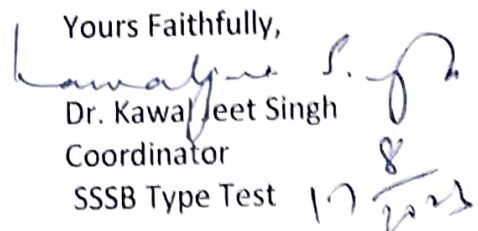 Yours Faithfully,
Kawaljeet S.
Dr. Kawaljeet Singh
Coordinator
SSSB Type Test 17/8/2023